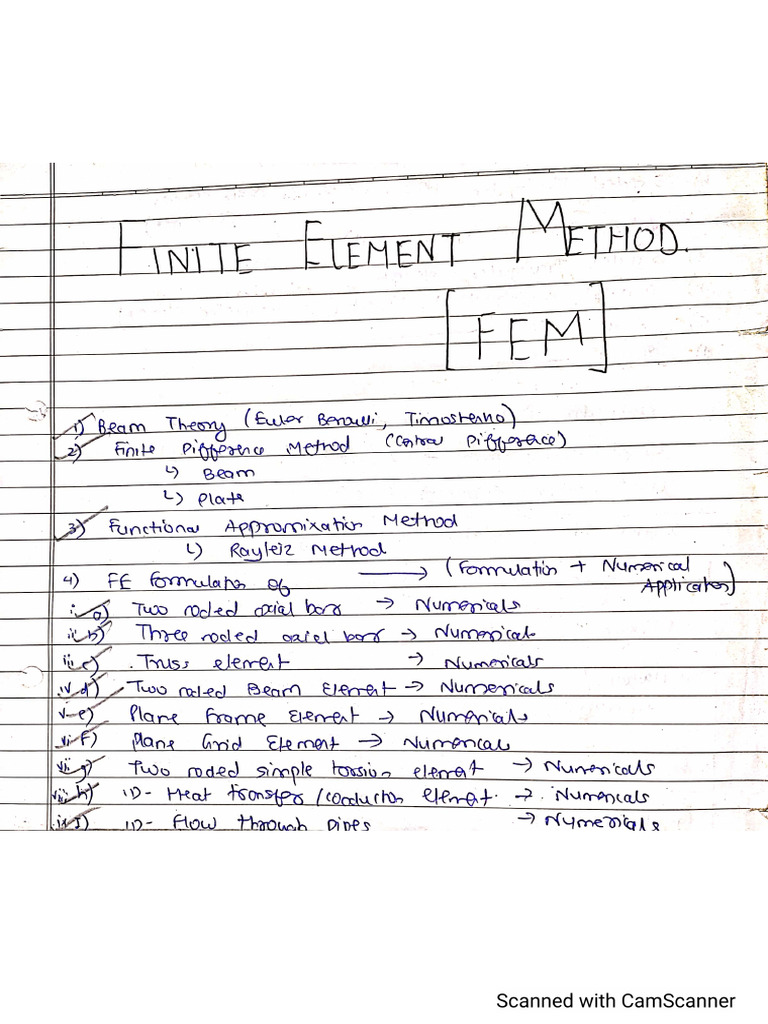 FINITE ELEMENT METHOD.
[FEM]
1) Beam Theory (Euler Benoulli, Timoshenho)
2) Finite Difference Method (Central Difference)
↳ Beam
↳ Plate
3) Functional Appromixation Method
↳ Rayleiz Method
4) FE formulation of → (Formulation + Numerical Application)
i. a) Two noded axial bar → Numericals
ii. b) Three noded axial bar → Numericals
iii. c) Truss element → Numericals
iv. d) Two noded Beam Element → Numericals
v. e) Plane Frame Element → Numericals
vi. f) Plane Grid Element → Numericals
vii. g) Two noded simple torsion element → Numericals
viii. h) 1D- Heat transfer/conduction element. → Numericals
ix. I) 1D- Flow through pipes → Numericals
Scanned with CamScanner